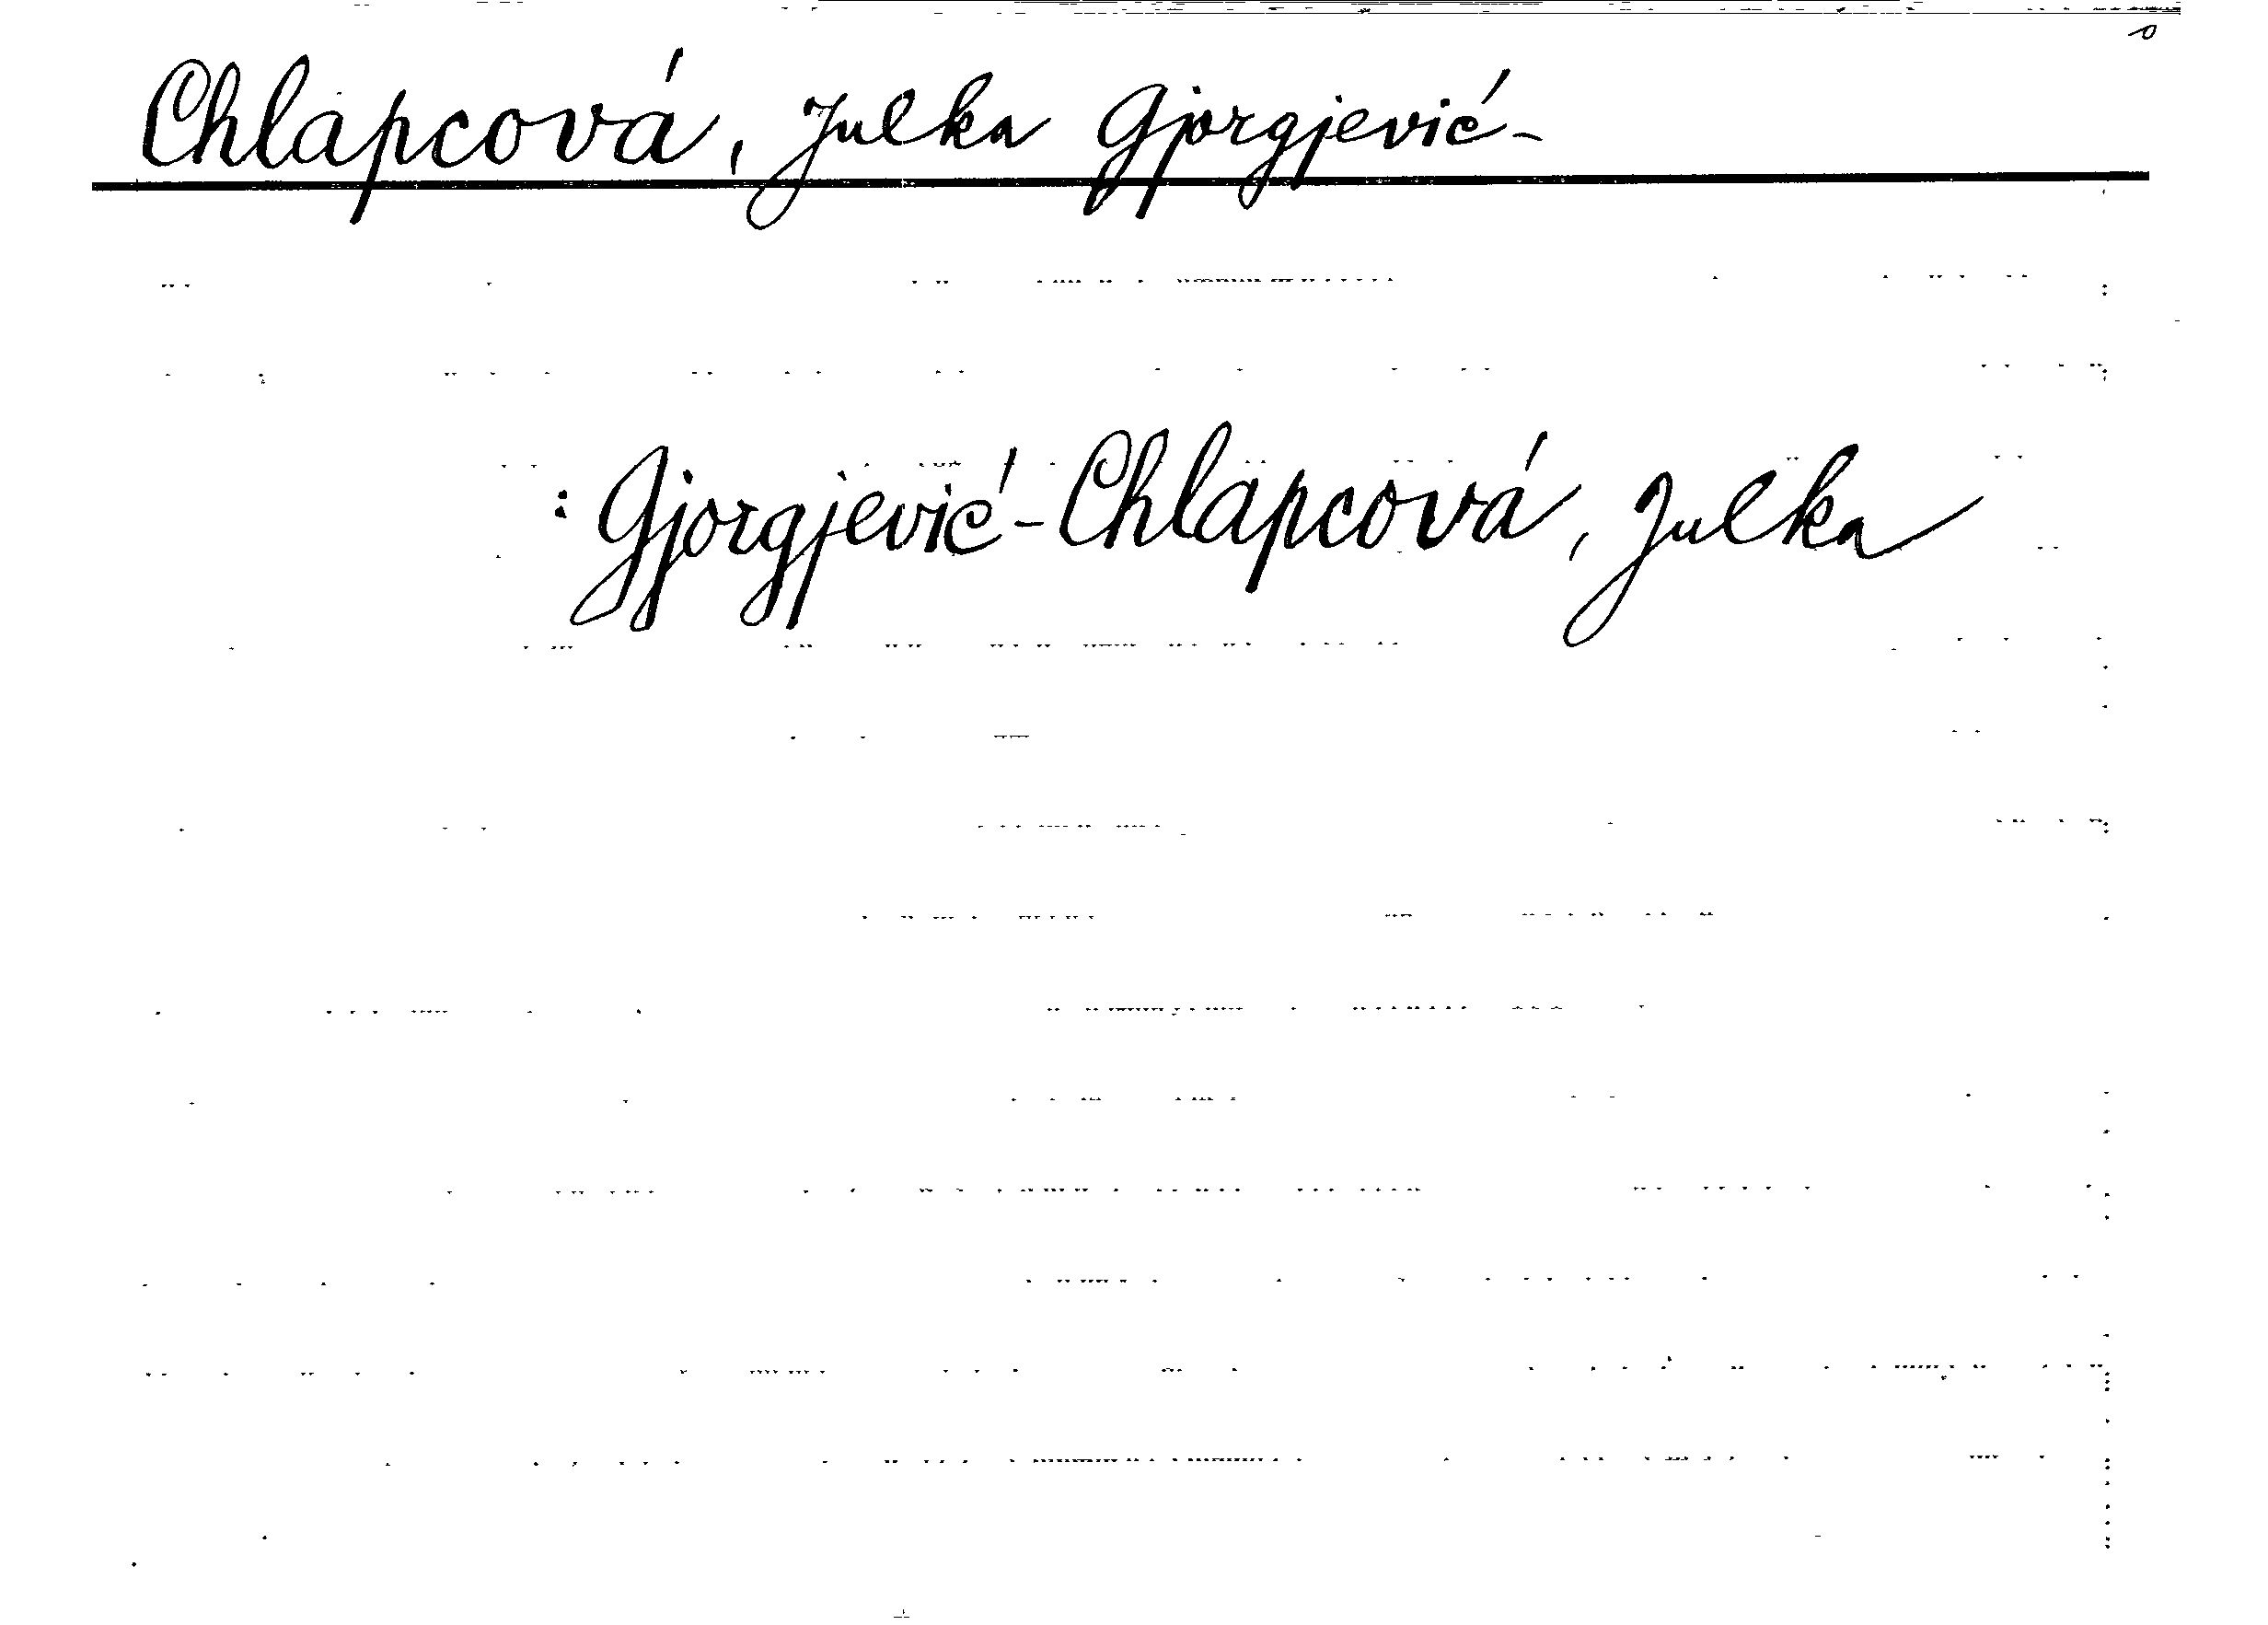 Chlapcová, Julka Gjorgjević-
: Gjorgjević-Chlapcová, Julka